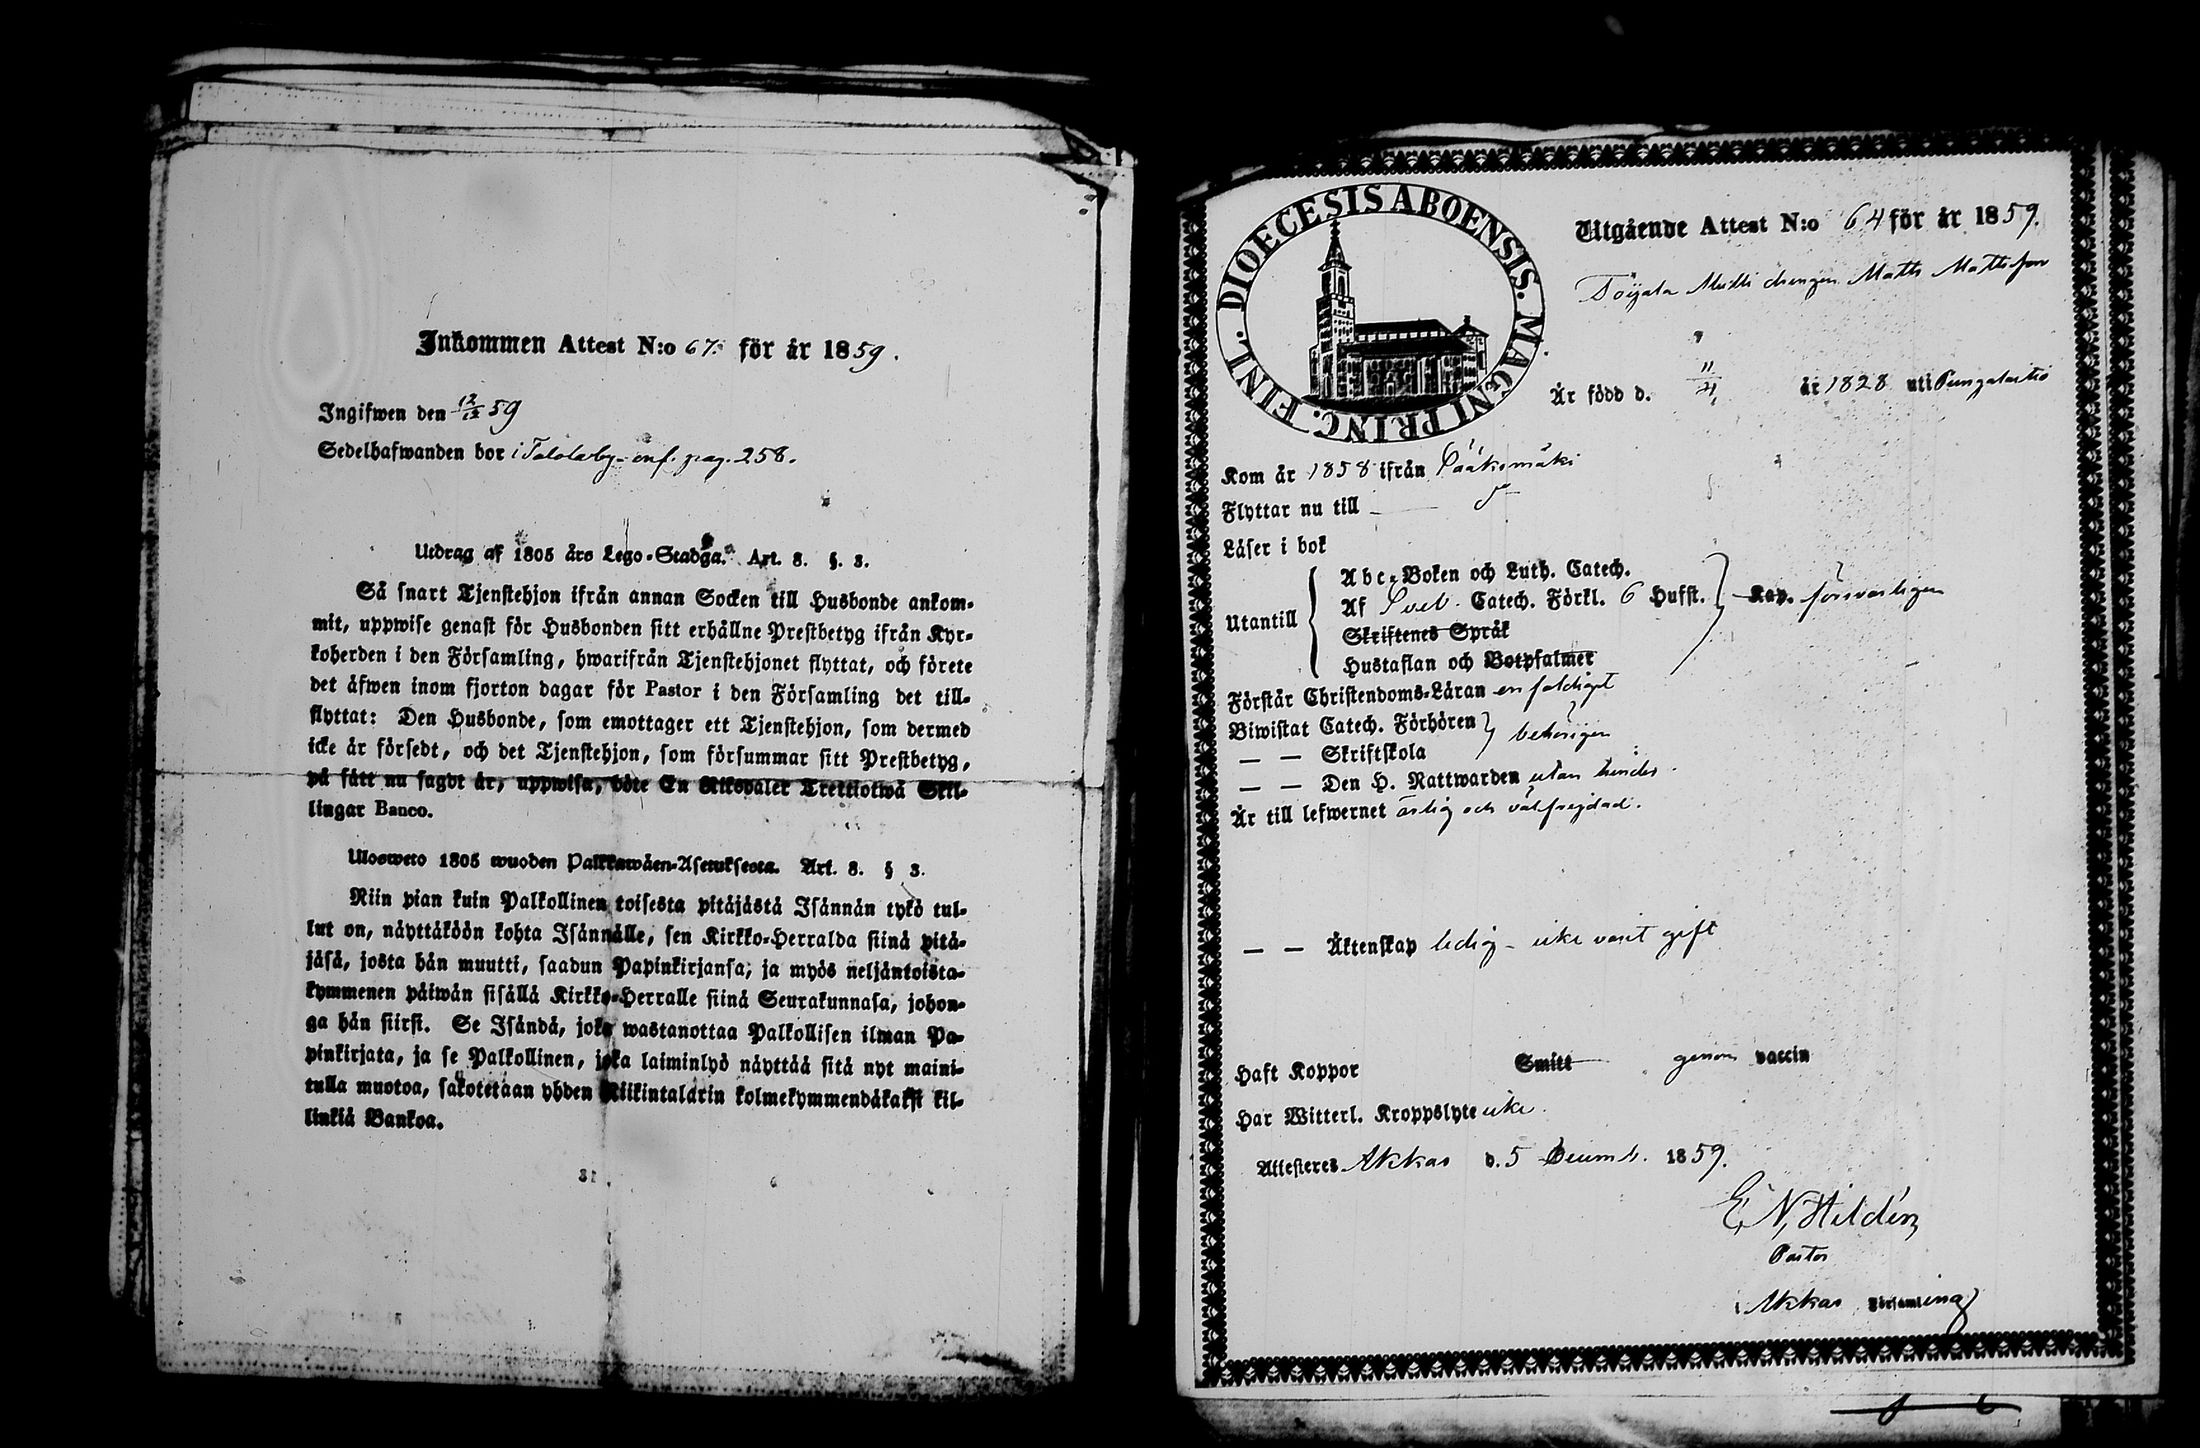 Inkommen Attest N:o 67. för år 1859.
Ingifwen den 12/12 59
Sedelhafwanden bor i Talolaby - enf. pag. 258.
Utdrag af 1805 års Lego-Stadga. Art. 8. §. 3.
Så snart Tjenstehjon ifrån annan Socken till Husbonde ankom-
mit, uppwise genast för Husbonden sitt erhållne Prestbetyg ifrån Kyr-
koherden i den Församling, hwarifrån Tjenstehjonet flyttat, och förete
det äfwen inom fjorton dagar för Pastor i den Församling det till-
flyttat: Den Husbonde, som emottager ett Tjenstehjon, som dermed
icke är försedt, och det Tjenstehjon, som försummar sitt Prestbetyg,
på sätt nu sagdt är, uppwisa, böte En Riksdaler Trettiotwå Skil-
lingar Banco.
Ulosweto 1805 wuoden Palkkawäen-Asetuksesta. Art. 8. § 3.
Niin pian kuin Palkollinen toisesta pitäjästä Isännän tykö tul-
lut on, näyttäköön kohta Isännälle, sen Kirkko-Herralda siinä pitä-
jäsä, josta hän muutti, saadun Papinkirjansa, ja myös neljäntoista-
kymmenen päiwän sisällä Kirkko-Herralle siinä Seurakunnasa, johon-
ga hän siirsi. Se Isändä, joka wastanottaa Palkollisen ilman Pa-
pinkirjata, ja se Palkollinen, joka laiminlyö näyttää sitä nyt maini-
tulla muotoa, sakotetaan yhden Riikintalarin kolmekymmendäkaksi kil-
linkiä Bankoa.
31
DIOECESIS ABOENSIS. MAGNI PRINC. FINL.
Utgående Attest N:o 64 för år 1859.
Toijala drengen Matts Mattsson
Är född d. 11/4 år 1828 uti Pungalaitio
Kom år 1858 ifrån Pääksmäki
Flyttar nu till — do
Läser i bok
Utantill
Abc-Boken och Luth. Catech.
Af Sveb. Catech. Förkl. 6 Hufst. Kap. försvarligen
Skriftenes Språk
Hustaflan och Botpsalmer
Förstår Christendoms-Läran enfaldigt
Biwistat Catech. Förhören
— — Skriftskola behörigen
— — Den H. Nattwarden utan hinder.
Är till lefwernet ärlig och välfrejdad.
— — Äktenskap ledig - icke varit gift
Haft Koppor Smitt genom vaccin
Har Witterl. Kroppslyte icke.
Attesteres Akkas d. 5 Decemb. 1859.
E. N. Hildén
Pastor
i Akkas Församling